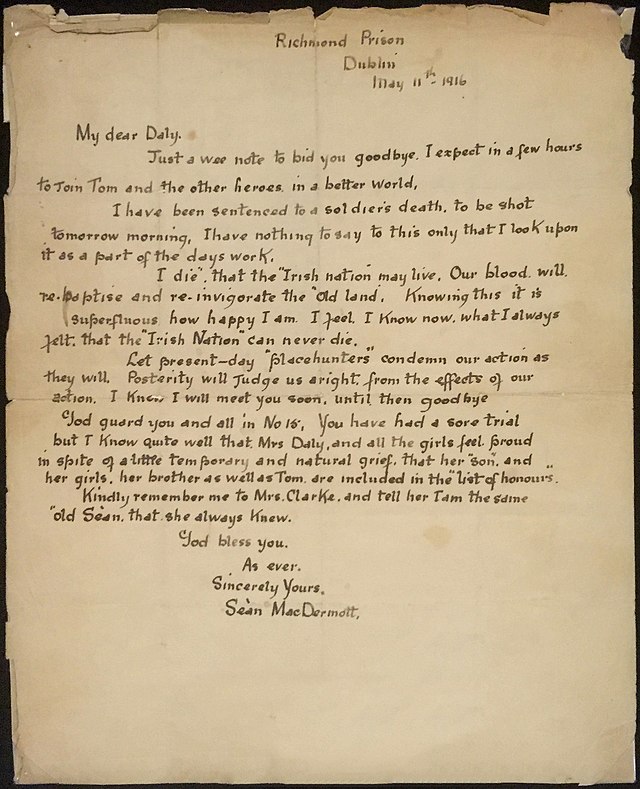 Richmond Prison
Dublin
May 11th 1916
My dear Daly.
Just a wee note to bid you goodbye. I expect in a few hours
to join Tom and the other heroes in a better world.
I have been sentenced to a soldiers death. to be shot
tomorrow morning. I have nothing to say to this only that I look upon
it as a part of the days work.
I die", that the "Irish nation may live. Our blood will
re-baptise and re-invigorate the "old land. Knowing this it is
superfluous how happy I am. I feel. I know now, what I always
felt, that the "Irish Nation" can never die.
Let present-day "placehunters" condemn our action as
they will. Posterity will judge us aright from the effects of our
action. I know I will meet you soon, until then goodbye
God guard you and all in No 15. You have had a sore trial
but I know quite well that, Mrs Daly, and all the girls feel proud
in spite of a little temporary and natural grief, that her "son", and
her girls, her brother as well as Tom, are included in the "list of honours".
Kindly remember me to Mrs. Clarke, and tell her I am the same
"old Seàn, that she always knew.
God bless you.
As ever.
Sincerely Yours.
Seàn MacDermott,